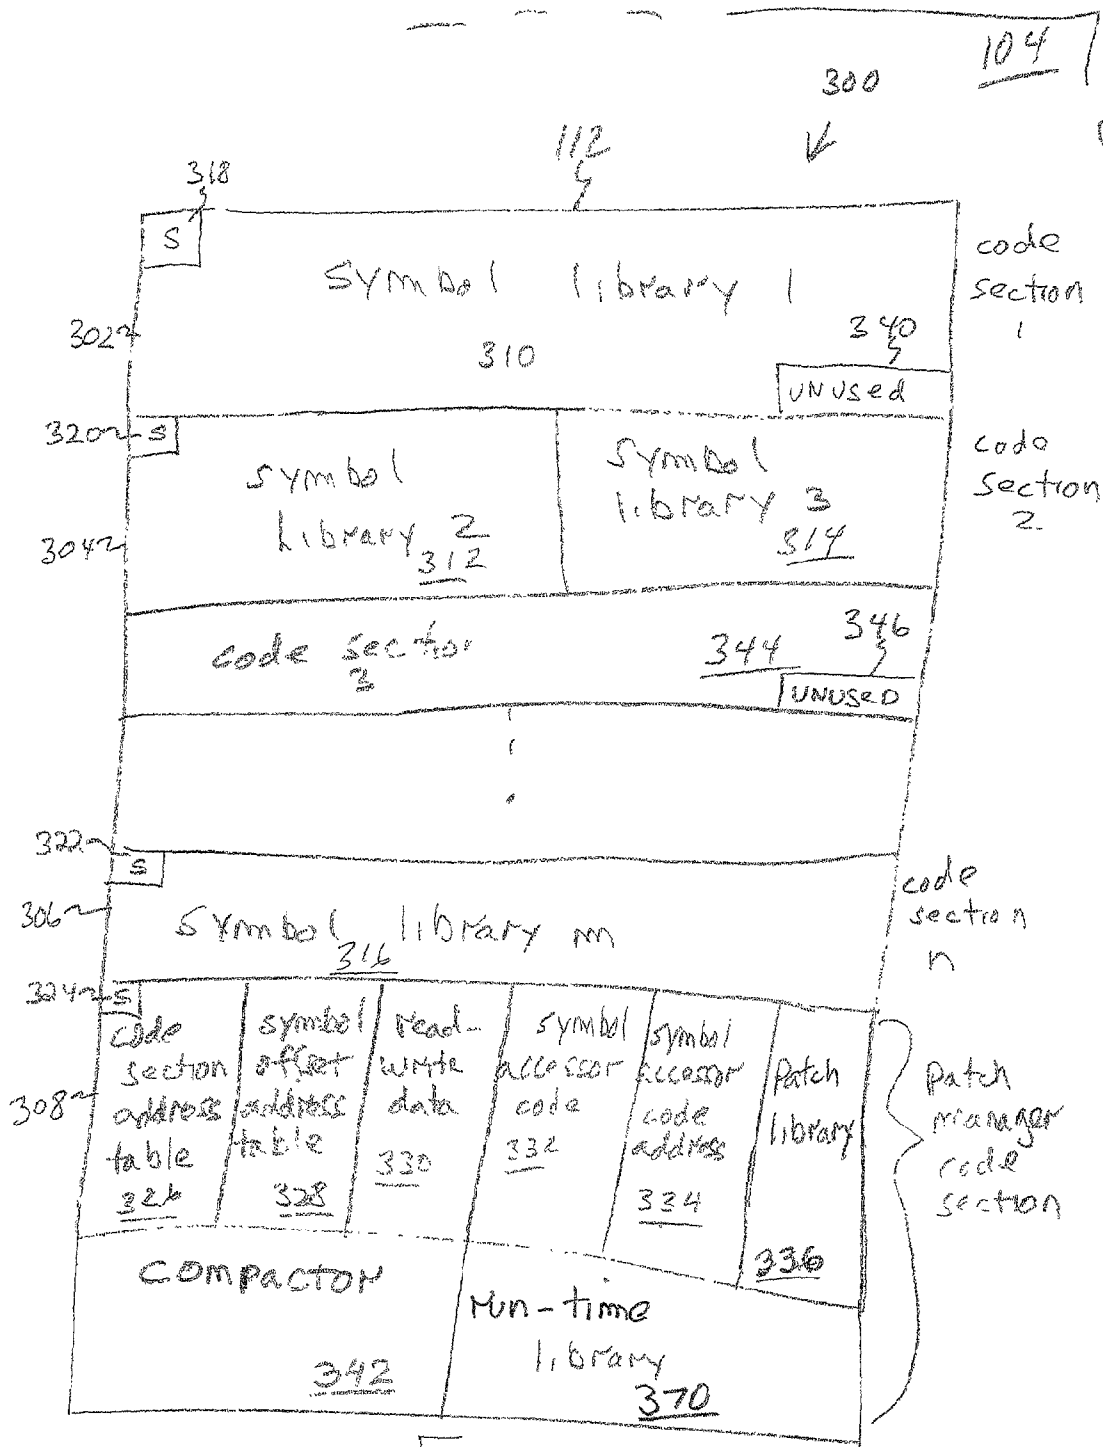 104
300
112
318
S
symbol library 1
code
section
1
302
310
340
UNUSED
320
S
symbol
library 2
312
symbol
library 3
314
code
section
2
304
code section
3
344
346
UNUSED
322
S
306
symbol library m
316
code
section
n
324
S
308
code
section
address
table
326
symbol
offset
address
table
328
read-
write
data
330
symbol
accessor
code
332
symbol
accessor
code
address
334
Patch
library
336
Patch
manager
code
section
COMPACTOR
342
run-time
library
370